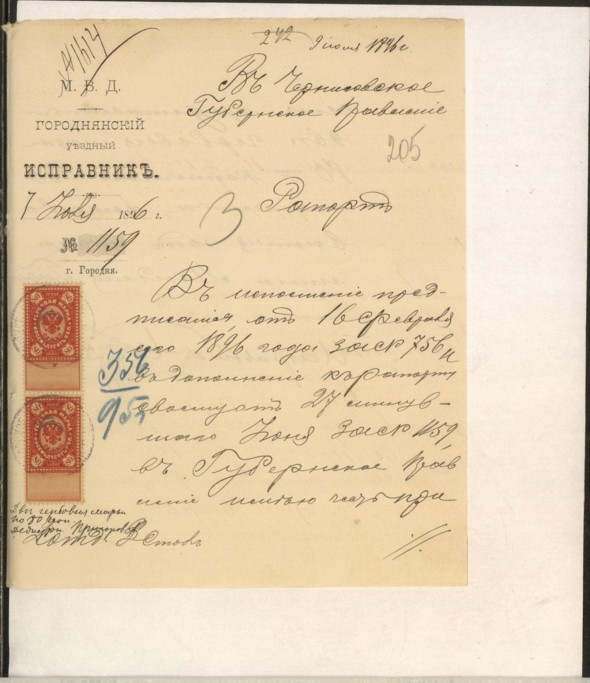 242 9 июля 1896 г.
М. В. Д.
ГОРОДНЯНСКІЙ
уѣздный
ИСПРАВНИКЪ.
7 Іюля 1896 г.
№ 1159
г. Городня.
Въ Черниговское
Губернское Правленіе
205
3
Рапортъ
Въ исполненіе пред-
писанія, отъ 16 Февраля
сего 1896 года за № 756 и
въ дополненіе къ рапорту
отъ 27 минув-
шаго Іюня за № 1159,
въ Губернское Прав
леніе имѣю честь при
356
95
Двѣ гербовыя марки
по 80 коп